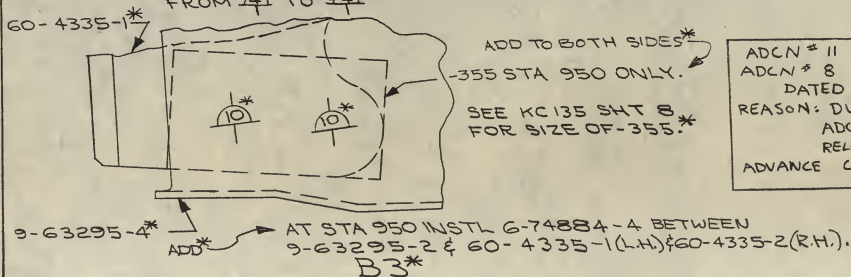 FROM 141 TO 341
60-4335-1*
ADD TO BOTH SIDES*
-355 STA 950 ONLY.
10*
10*
SEE KC135 SHT 8
FOR SIZE OF -355.*
ADCN # 11
ADCN # 8
DATED
REASON: DU
ADC
REL
ADVANCE C
9-63295-4*
ADD*
AT STA 950 INSTL 6-74884-4 BETWEEN
9-63295-2 & 60-4335-1(L.H.) & 60-4335-2(R.H.).
B3*